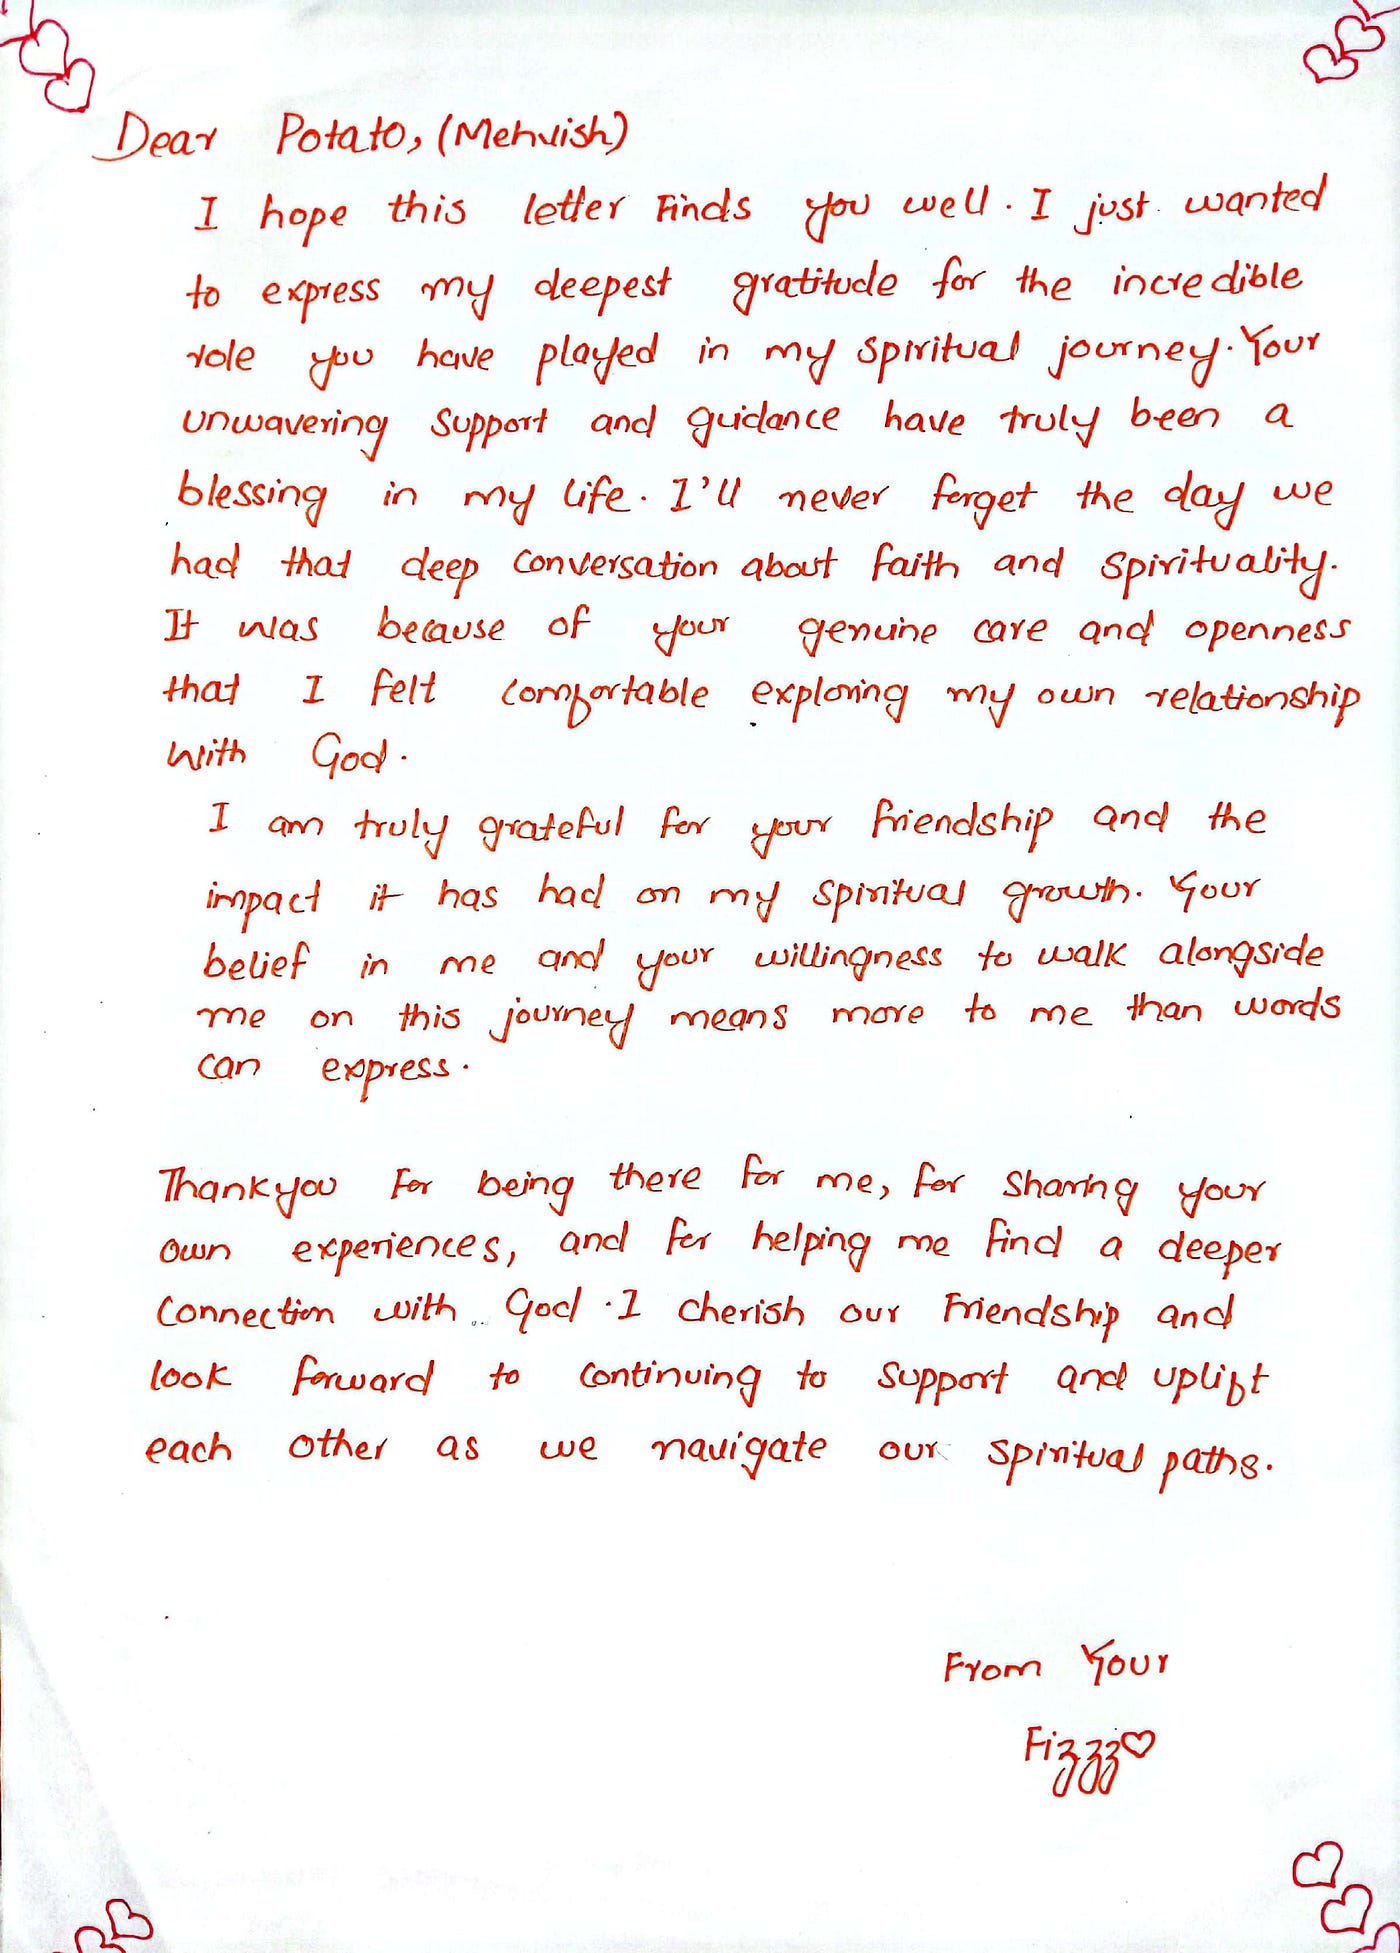 Dear Potato, (Mehvish)
I hope this letter Finds you well. I just wanted
to express my deepest gratitude for the incredible
role you have played in my spiritual journey. Your
unwavering support and guidance have truly been a
blessing in my life. I'll never forget the day we
had that deep conversation about faith and spirituality.
It was because of your genuine care and openness
that I felt comfortable exploring my own relationship
with God.
I am truly grateful for your friendship and the
impact it has had on my spiritual growth. Your
belief in me and your willingness to walk alongside
me on this journey means more to me than words
can express.
Thankyou For being there for me, for sharing your
own experiences, and for helping me find a deeper
connection with God. I cherish our Friendship and
look forward to continuing to support and uplift
each other as we navigate our spiritual paths.
From Your
Fizzz♡